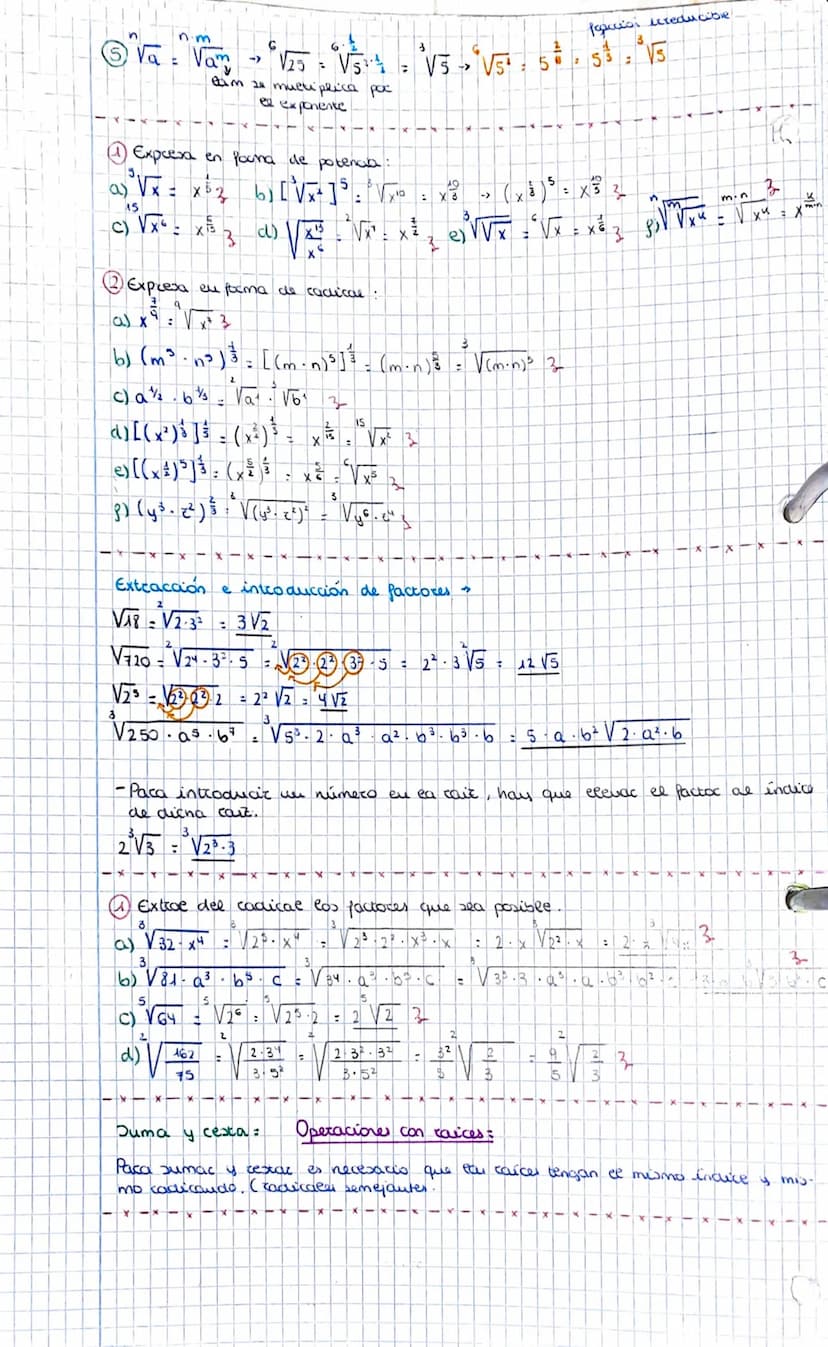 fracción irreducible
⑤ ⁿ√a = ⁿ·ᵐ√aᵐ → ⁶√25 = ⁶·½√5²·½ = ³√5 → ⁶√5² = 5^(2/6) = 5^(1/3) = ³√5
se multiplica por
el exponente
① Expresa en forma de potencia:
a) ³√x = x^(1/3) b) [³√x²]⁵ = ³√x¹⁰ = x^(10/3) → (x^(2/3))⁵ = x^(10/3)
c) ¹⁵√x⁶ = x^(6/15) d) √(x¹³/x⁶) = ²√x⁷ = x^(7/2) e) ³√√x = ⁶√x = x^(1/6) f) ⁿ√ᵐ√xᵏ = ᵐ·ⁿ√xᵏ = x^(k/m·n)
② Expresa en forma de radical:
a) x^(7/9) = ⁹√x⁷
b) (m⁵ · n⁵)^(1/3) = [(m · n)⁵]^(1/3) = (m · n)^(5/3) = ³√(m·n)⁵
c) a^(1/2) · b^(1/3) = ²√a¹ · ³√b¹
d) [(x²)^(1/3)]^(1/5) = x^(2/15) = ¹⁵√x²
e) [(x^(1/2))⁵]^(1/3) = (x^(5/2))^(1/3) = x^(5/6) = ⁶√x⁵
f) (y³ · z²)^(2/3) = ³√(y³ · z²)² = ³√y⁶ · z⁴
Extracción e introducción de factores →
√18 = ²√2·3² = 3√2
√720 = ²√2⁴ · 3² · 5 = ²√2² · 2² · 3² · 5 = 2² · 3 ²√5 = 12√5
√2⁵ = √2² · 2² · 2 = 2² √2 = 4√2
³√250 · a⁵ · b⁷ = ³√5³ · 2 · a³ · a² · b³ · b³ · b = 5 · a · b² √2 · a² · b
- Para introducir un número en la raíz, hay que elevar el factor al índice
de dicha raíz.
2 ³√3 = ³√2³ · 3
① Extrae del radical los factores que sea posible.
a) ³√32 · x⁴ = ³√2⁵ · x⁴ = ³√2³ · 2² · x³ · x = 2 · x ³√2² · x =
b) ³√81 · a³ · b⁵ · c = ³√3⁴ · a³ · b⁵ · c =
c) ⁵√64 = ⁵√2⁶ = ⁵√2⁵ · 2 = 2 ⁵√2
d) ²√(162/75) = ²√(2·3⁴/3·5²) = ²√(2·3²·3²/3·5²) = 3²/5 ²√(2/3) = 9/5 ²√(2/3)
Suma y resta: Operaciones con raíces:
Para sumar y restar es necesario que las raíces tengan el mismo índice y mis-
mo radicando. (radicales semejantes.